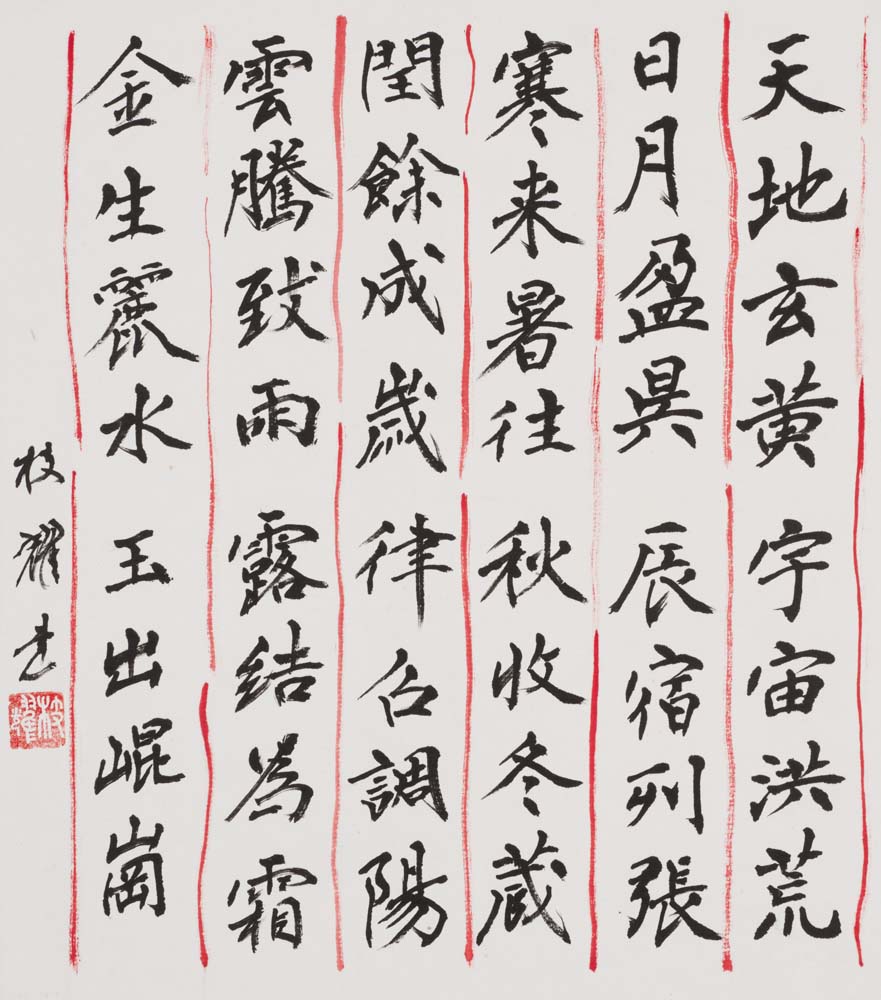 天地玄黄 宇宙洪荒
日月盈昃 辰宿列張
寒来暑往 秋收冬蔵
閏餘成歲 律召調陽
雲騰致雨 露結為霜
金生麗水 玉出崐崗
枝耀书
枝耀